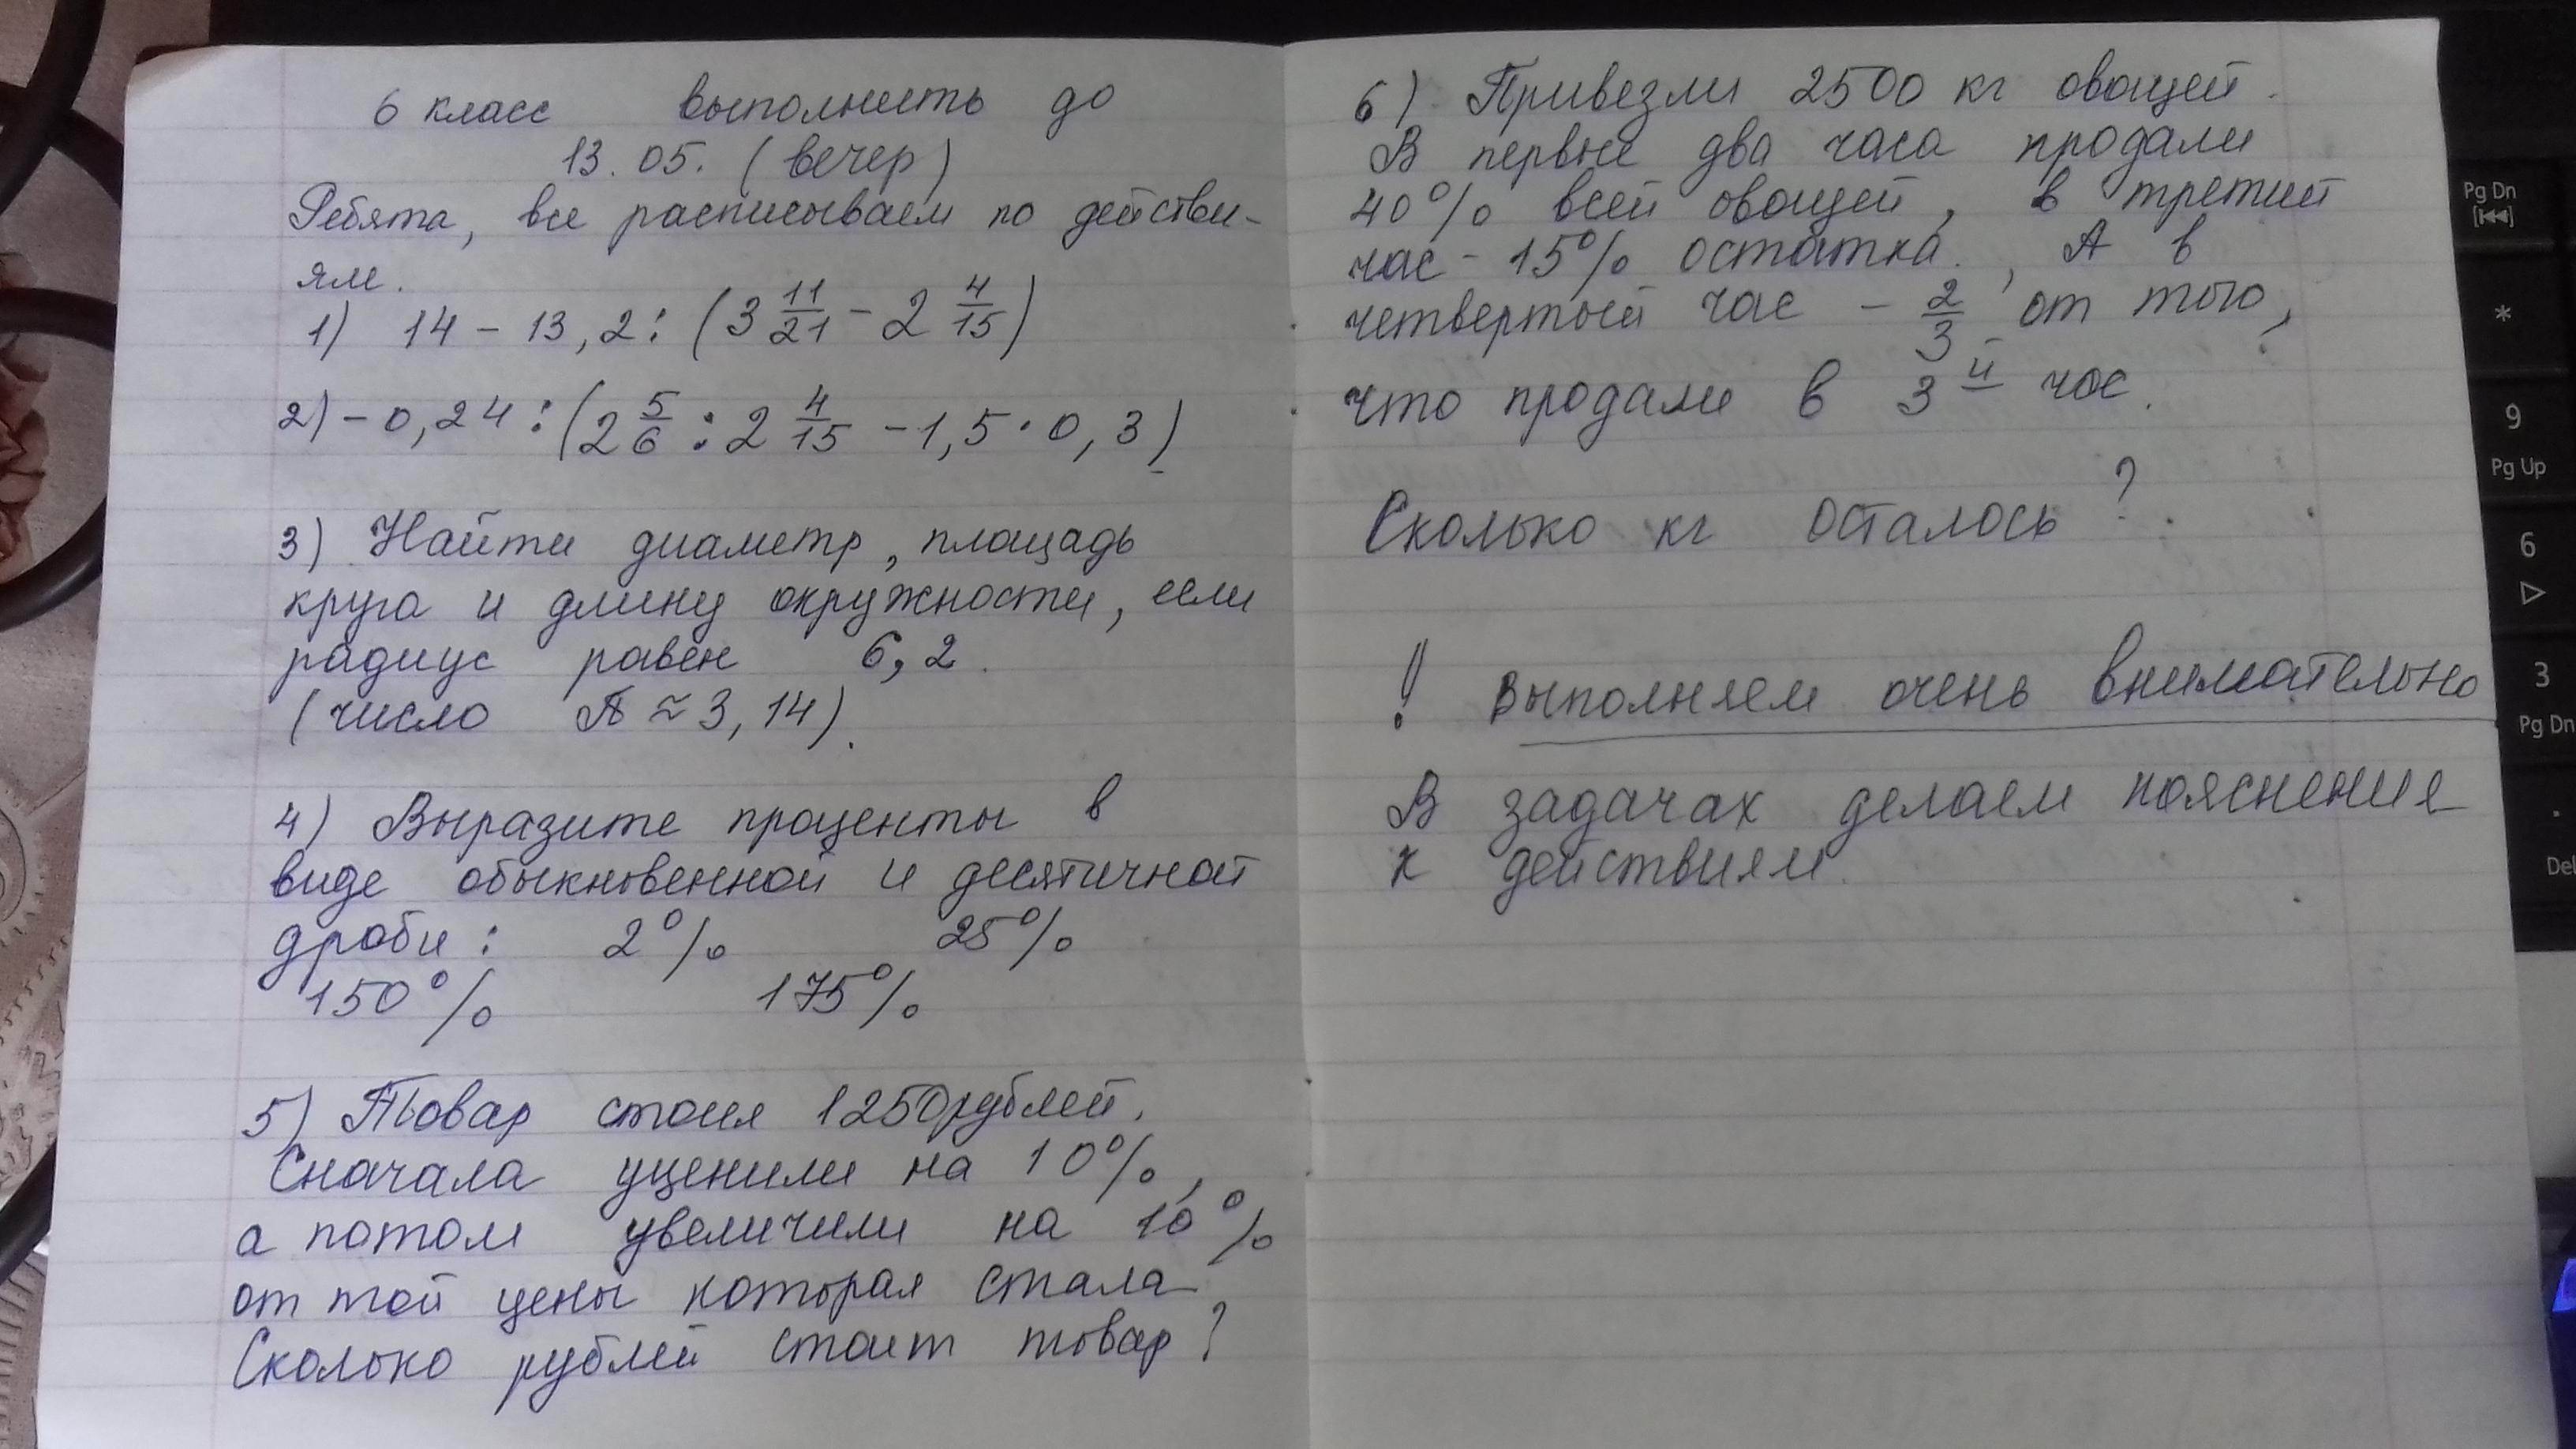 6 класс выполнить до
13.05. (вечер)
Ребята, все расписываем по действи-
ям.
1) 14 - 13,2 : (3 11/21 - 2 4/15)
2) - 0,24 : (2 5/6 : 2 4/15 - 1,5 · 0,3)
3) Найти диаметр, площадь
круга и длину окружности, если
радиус равен 6,2.
(число π ≈ 3,14).
4) Выразите проценты в
виде обыкновенной и десятичной
дроби: 2% 25%
150% 175%
5) Товар стоил 1250 рублей.
Сначала уценили на 10%,
а потом увеличили на 10%
от той цены которая стала
Сколько рублей стоит товар?
6) Привезли 2500 кг овощей.
В первые два часа продали
40% всей овощей, в третий
час - 15% остатка., А в
четвертый час - 2/3 от того,
что продали в 3й час.
Сколько кг осталось?
! Выполняем очень внимательно
В задачах делаем пояснение
к действиям.
Pg Dn
*
9
Pg Up
6
3
Pg Dn
.
Del